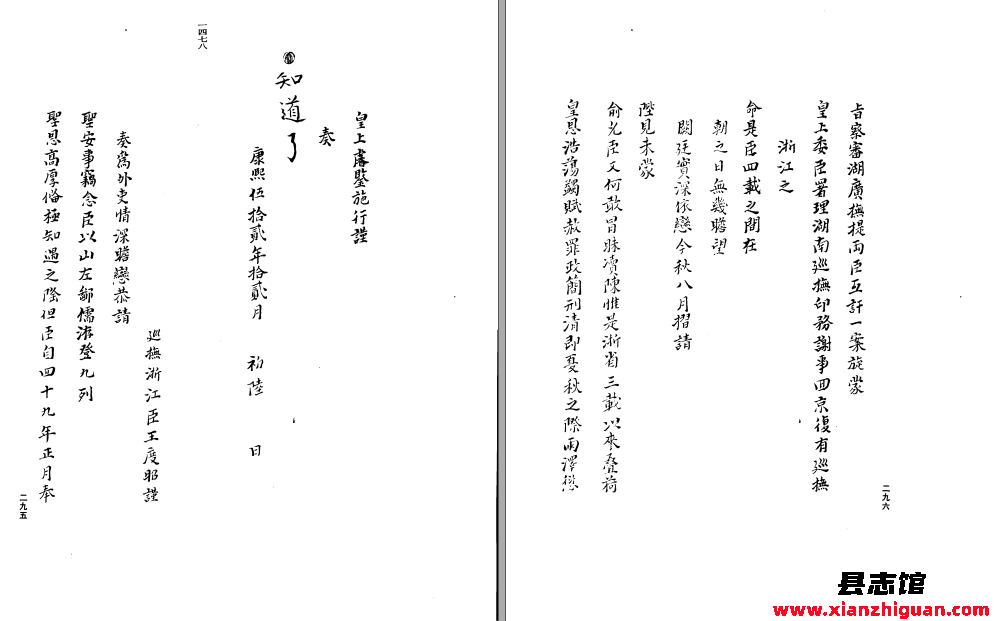 皇上睿鑒施行謹
奏
知道了
康熙伍拾貳年拾貳月 初陸 日
一四七八
巡撫浙江臣王度昭謹
奏為外吏情深瞻戀恭請
聖安事竊念臣以山左鄙儒洊登九列
聖恩高厚備極知遇之隆但臣自四十九年正月奉
二九五
旨察審湖廣撫提兩臣互訐一案旋蒙
皇上委臣署理湖南巡撫印務謝事回京復有巡撫
浙江之
命是臣四載之間在
朝之日無幾瞻望
闕廷實深依戀今秋八月摺請
陛見未蒙
俞允臣又何敢冒昧瀆陳惟是浙省三載以來疊荷
皇恩浩蕩蠲賦赦罪政簡刑清即夏秋之際雨澤愆
二九六
县志馆
www.xianzhiguan.com